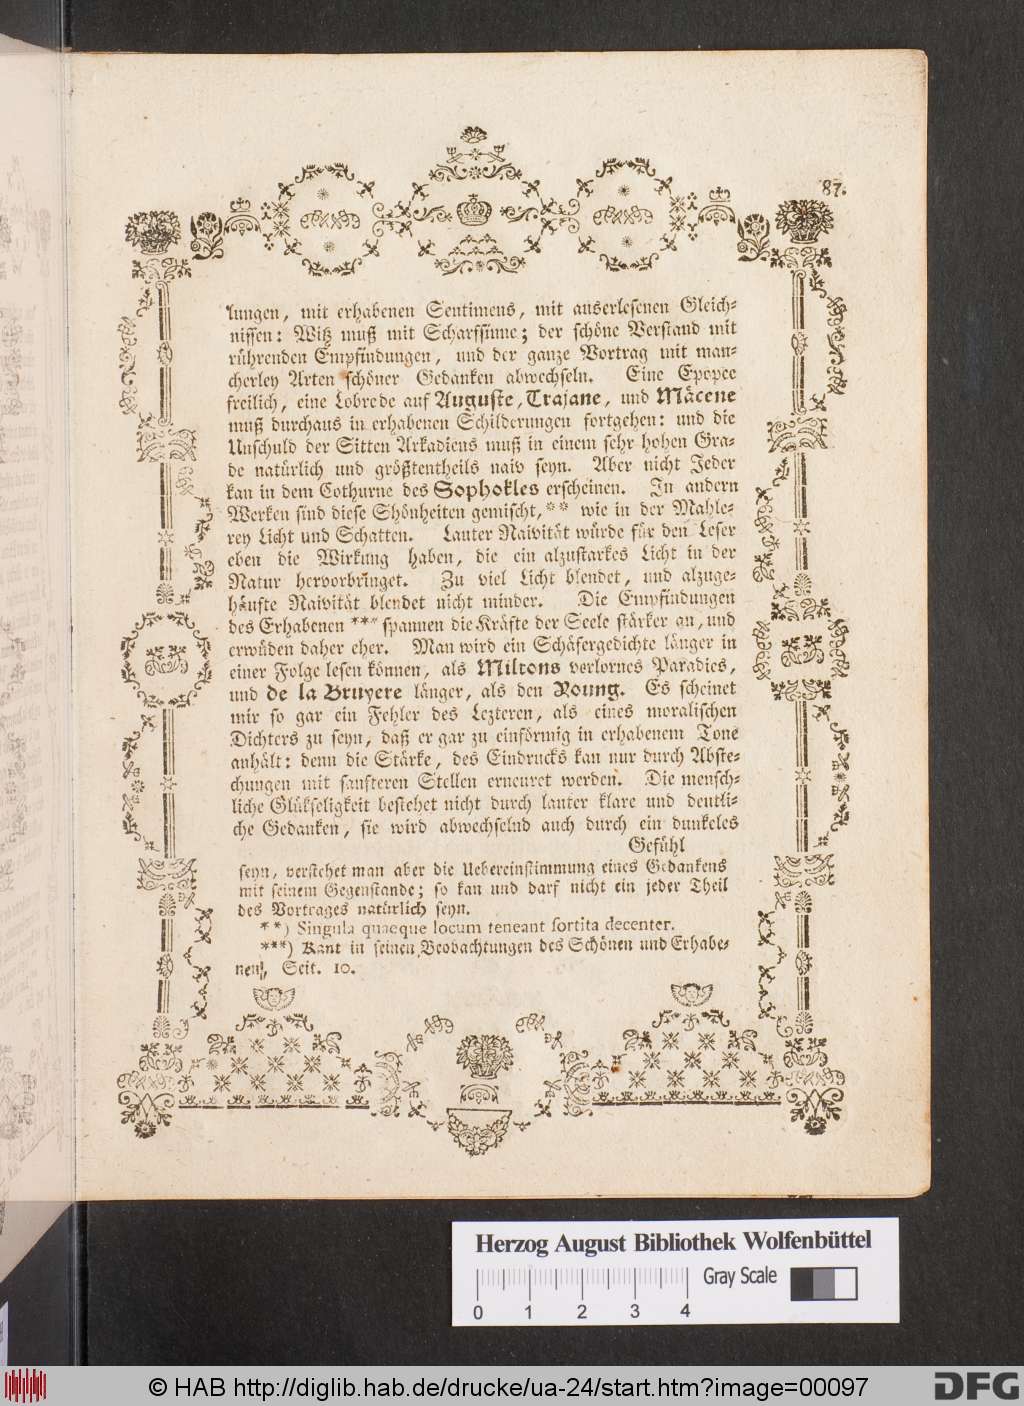 87.
lungen, mit erhabenen Sentimens, mit auserlesenen Gleich-
nissen: Witz muß mit Scharfsinne; der schöne Verstand mit
rührenden Empfindungen, und der ganze Vortrag mit man-
cherley Arten schöner Gedanken abwechseln. Eine Epopee
freilich, eine Lobrede auf Auguste, Trajane, und Mäcene
muß durchaus in erhabenen Schilderungen fortgehen: und die
Unschuld der Sitten Arkadiens muß in einem sehr hohen Gra-
de natürlich und größtentheils naiv seyn. Aber nicht Jeder
kan in dem Cothurne des Sophokles erscheinen. In andern
Werken sind diese Schönheiten gemischt,** wie in der Mahle-
rey Licht und Schatten. Lauter Naivität würde für den Leser
eben die Wirkung haben, die ein alzustarkes Licht in der
Natur hervorbringet. Zu viel Licht blendet, und alzuge-
häufte Naivität blendet nicht minder. Die Empfindungen
des Erhabenen *** spannen die Kräfte der Seele stärker an, und
erwüden daher eher. Man wird ein Schäfergedichte länger in
einer Folge lesen können, als Miltons verlornes Paradies,
und de la Bruyere länger, als den Young. Es scheinet
mir so gar ein Fehler des Lezteren, als eines moralischen
Dichters zu seyn, daß er gar zu einförmig in erhabenem Tone
anhält: denn die Stärke, des Eindrucks kan nur durch Abste-
chungen mit sanfteren Stellen erneuret werden. Die mensch-
liche Glükseligkeit bestehet nicht durch lauter klare und deutli-
che Gedanken, sie wird abwechselnd auch durch ein dunkeles
Gefühl
seyn, verstehet man aber die Uebereinstimmung eines Gedankens
mit seinem Gegenstande; so kan und darf nicht ein jeder Theil
des Vortrages natürlich seyn.
**) Singula quaeque locum teneant sortita decenter.
***) Kant in seinen Beobachtungen des Schönen und Erhabe-
nen, Seit. 10.
Herzog August Bibliothek Wolfenbüttel
0 1 2 3 4 Gray Scale
© HAB http://diglib.hab.de/drucke/ua-24/start.htm?image=00097 DFG